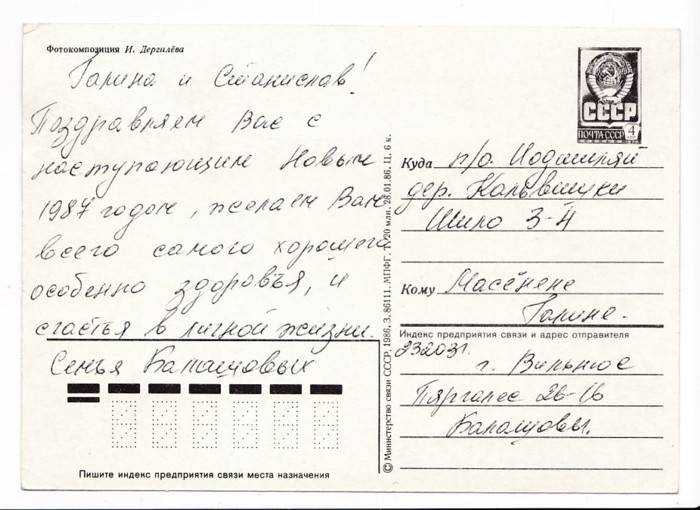 Фотокомпозиция И. Дергилёва
Галина и Станислав!
Поздравляем Вас с
наступающим Новым
1987 годом, желаем Вам
всего самого хорошего
особенно здоровья, и
счастья в личной жизни.
Семья Балашовых
Пишите индекс предприятия связи места назначения
© Министерство связи СССР, 1986. З. 86111. МПФГ. Т. 20 млн. 28.01.86. Ц. 6 к.
СССР
ПОЧТА СССР 4
Куда п/о. Иодшиляй
дер.
Шило 3-4
Кому Масёнене
Галине.
Индекс предприятия связи и адрес отправителя
232031.
г. Вильнюс
Пяргалес 26-16
Балашовы.